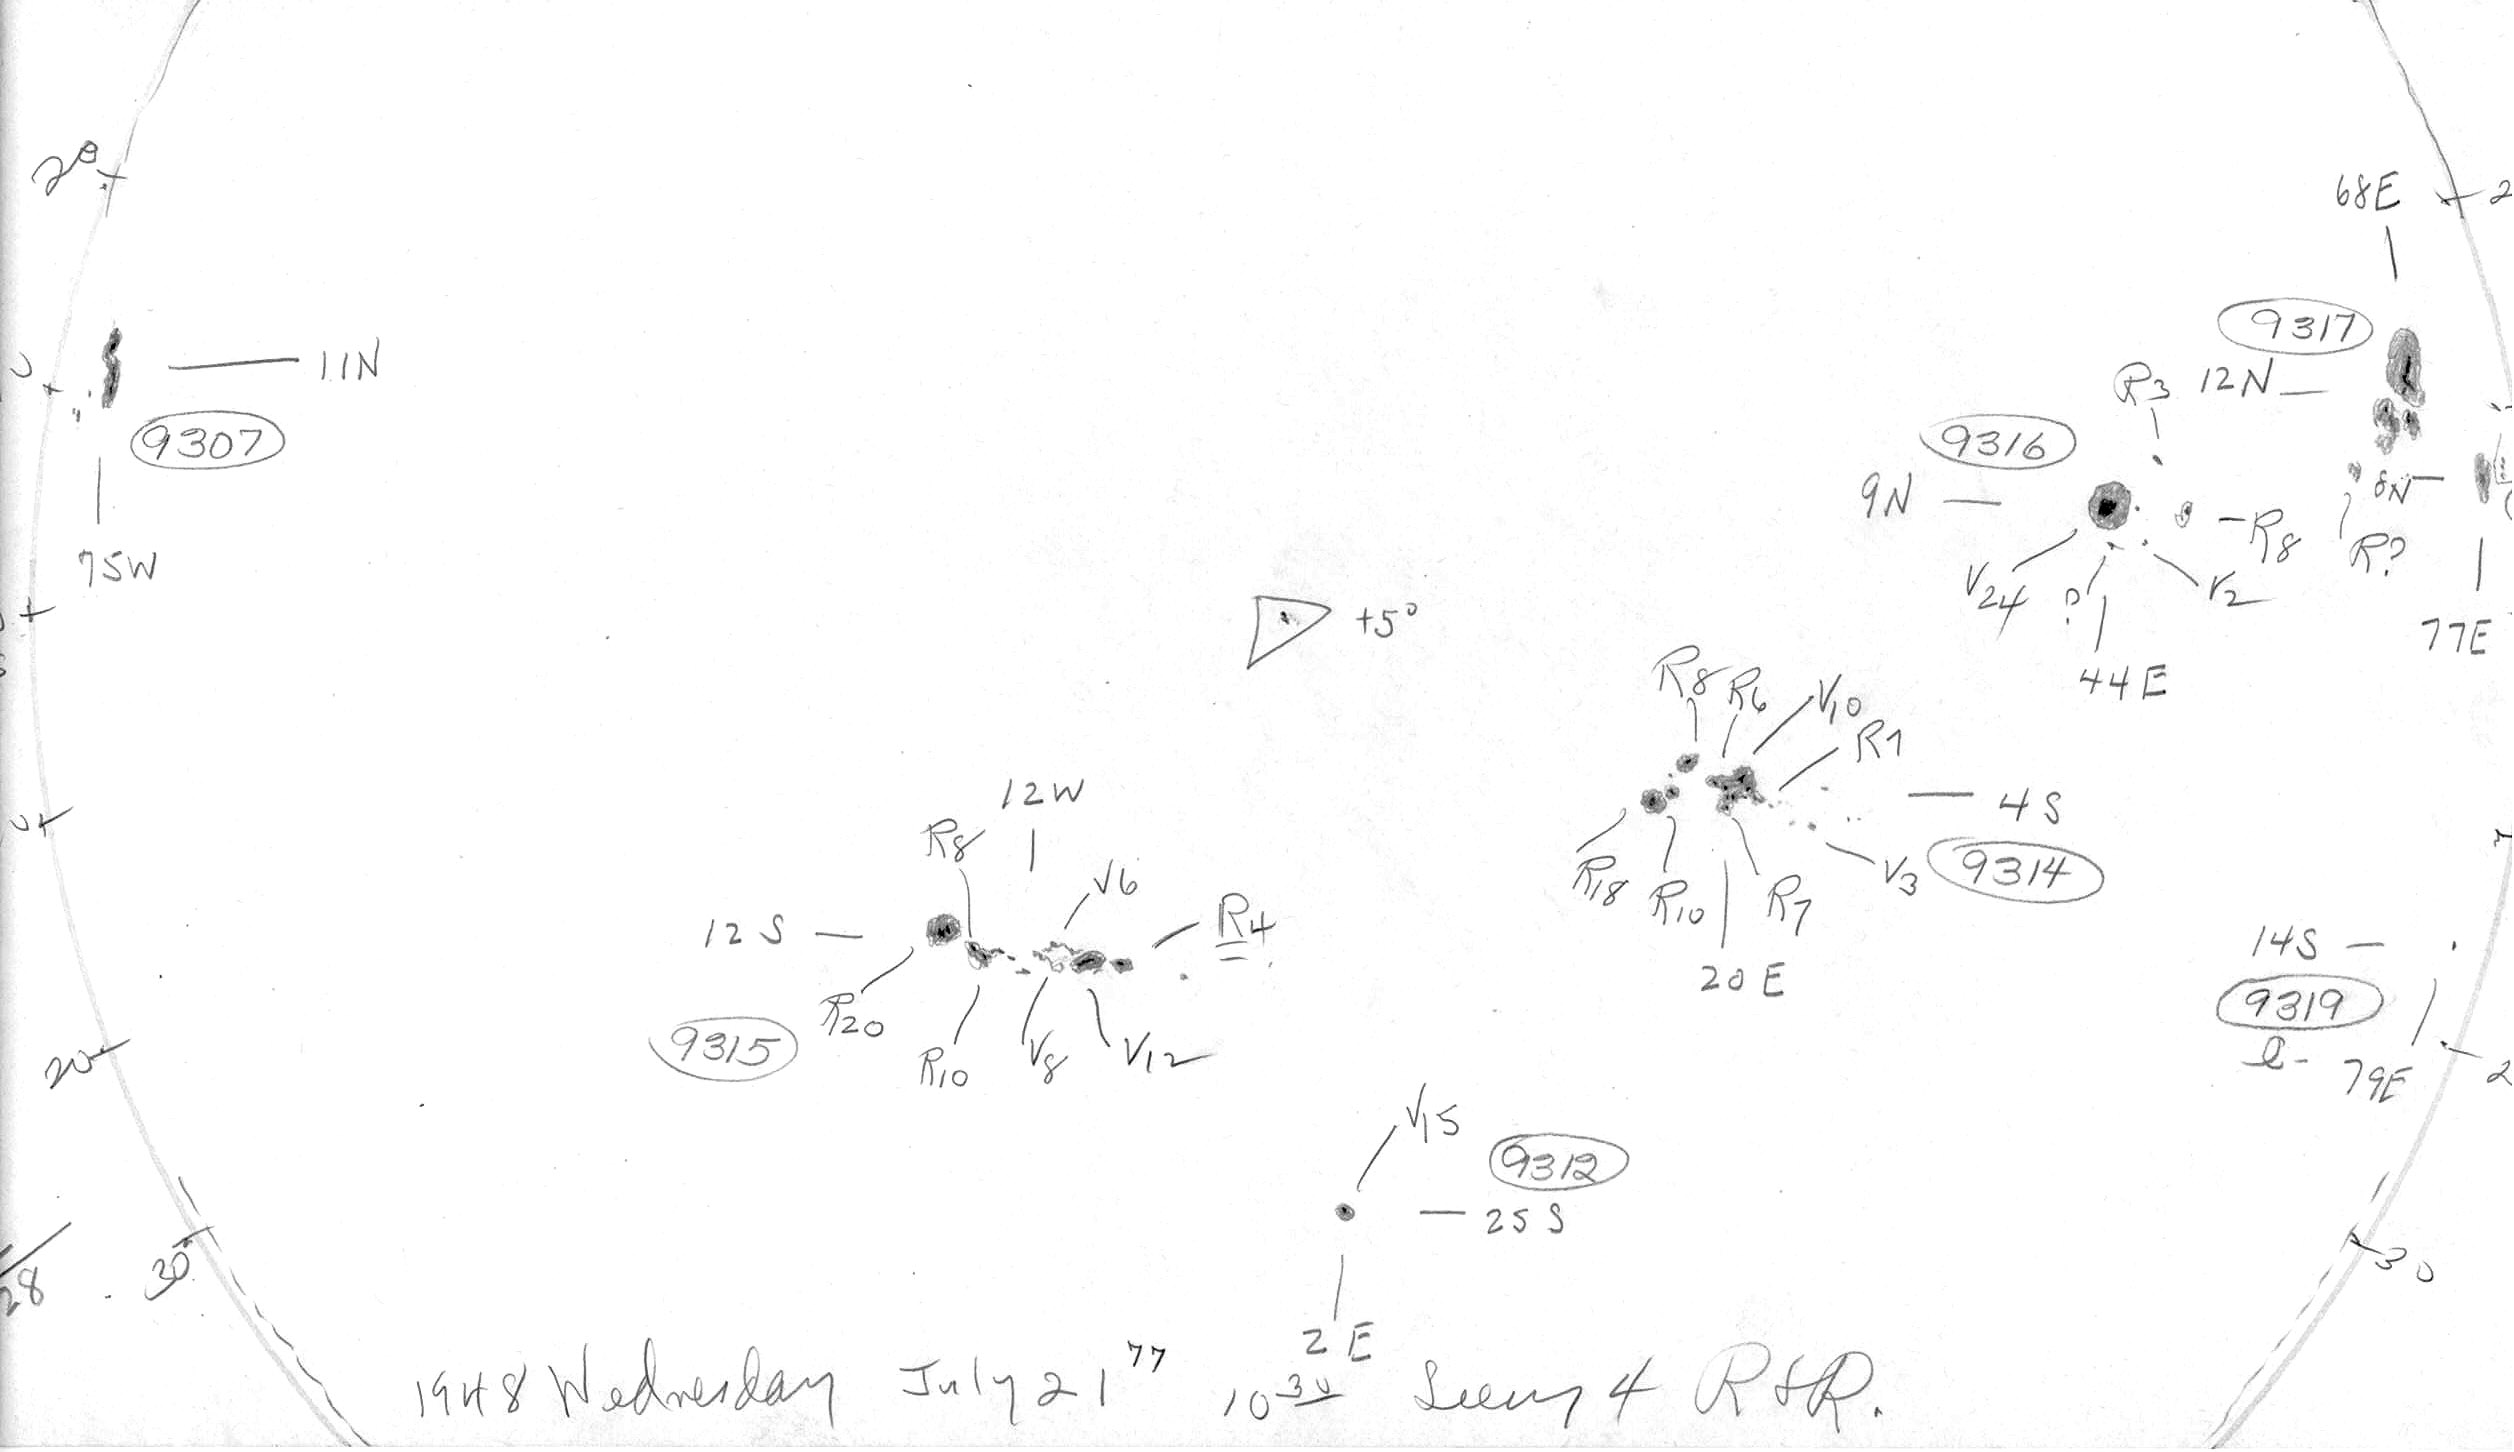 20
68E
2
9317
11N
R3
12N
9307
9316
9N
8N
R8
R?
75W
V24
?
V2
+5°
77E
44E
R8
R6
V10
R7
12W
4S
R8
V6
9314
R18
R10
R7
V3
12S
R4
20E
14S
R20
9319
9315
R10
V8
V12
l-
79E
20
2
V15
9312
25S
28
30
30
2E
1948 Wednesday July 21 77 10 30 Seeing 4 R&R.